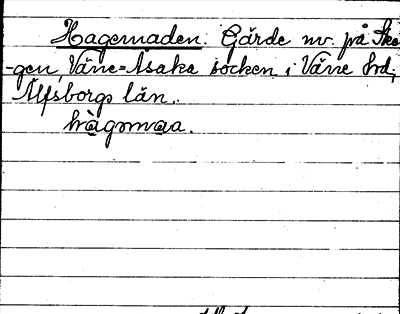 Hagemaden. Gärde nv. på Ske
-gen, Väne-Åsaka socken i Väne hrd,
Älfsborgs län.
hàgəmaa.